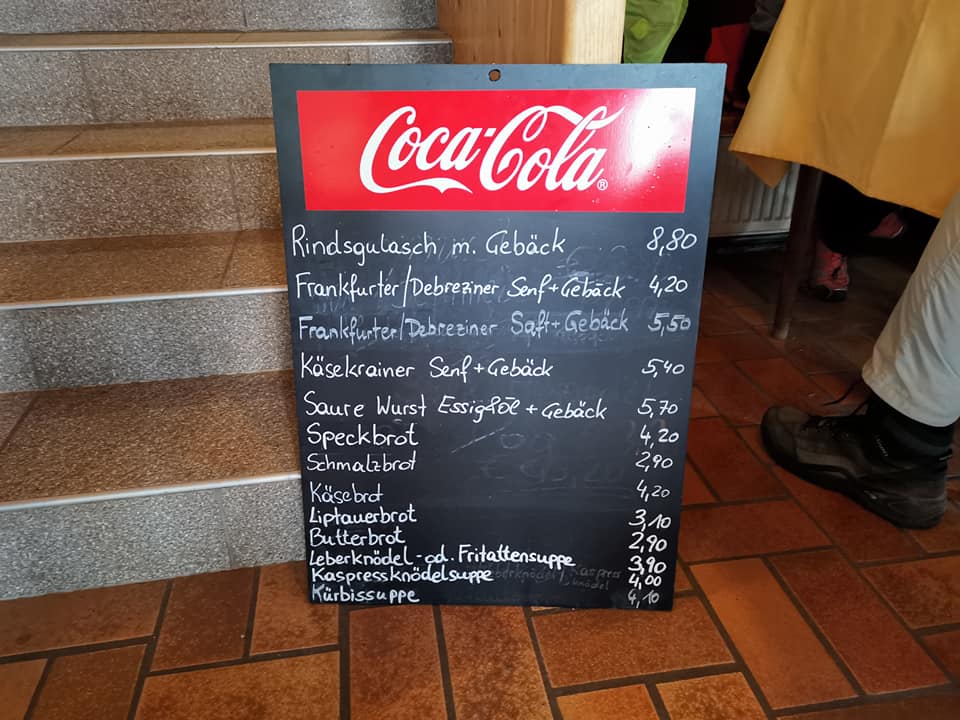 Coca-Cola ®
Rindsgulasch m. Gebäck 8,80
Frankfurter/Debreziner Senf+Gebäck 4,20
Frankfurter/Debreziner Saft+Gebäck 5,50
Käsekrainer Senf+Gebäck 5,40
Saure Wurst Essig&Öl + Gebäck 5,70
Speckbrot 4,20
Schmalzbrot 2,90
Käsebrot 4,20
Liptauerbrot 3,10
Butterbrot 2,90
Leberknödel-od. Fritattensuppe 3,90
Kaspressknödelsuppe 4,00
Kürbissuppe 4,10